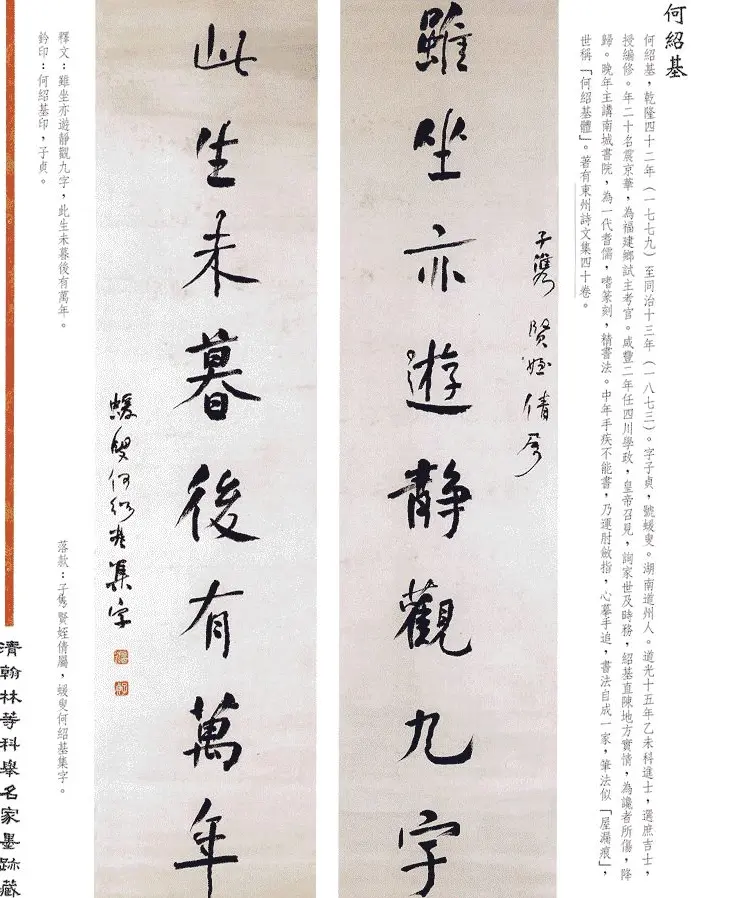 何紹基
何紹基，乾隆四十二年（一七七九）至同治十三年（一八七三）。字子貞，號蝯叟。湖南道州人。道光十五年乙未科進士，選庶吉士，
授編修。年二十名震京華，為福建鄉試主考官。咸豐二年任四川學政，皇帝召見，詢家世及時務，紹基直陳地方實情，為讒者所傷，降
歸。晚年主講南城書院，為一代耆儒，嗜篆刻，精書法。中年手疾不能書，乃運肘斂指，心摹手追，書法自成一家，筆法似「屋漏痕」，
世稱「何紹基體」。著有東州詩文集四十卷。
子雋賢姪倩屬
雖坐亦遊靜觀九字
此生未暮後有萬年
蝯叟何紹基集字
釋文：雖坐亦遊靜觀九字，此生未暮後有萬年。
落款：子雋賢姪倩屬，蝯叟何紹基集字。
鈐印：何紹基印，子貞。
清翰林等科舉名家墨跡藏